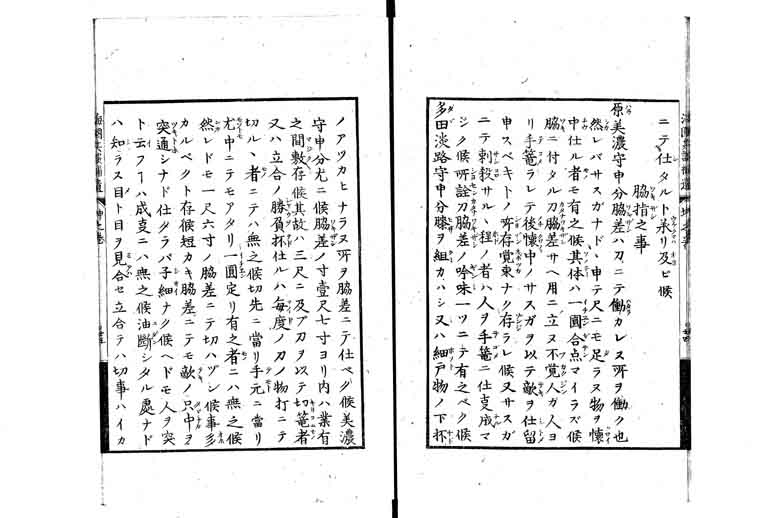 ニテ仕タルト承リ及ビ候
脇指之事
原美濃守申分脇差ハ刀ニテ働カレヌ所ヲ働ク也
然レバサスガナドヽ申テ尺ニモ足ラヌ物ヲ懐
中仕ル者モ有之候其体ハ一圓合点マイラズ候
脇ニ付タル刀脇差サヘ用ニ立ヌ不覚人ガ人ヨ
リ手篭ラレテ後懐中ノサスガヲ以テ敵ヲ仕留
申スベキトノ所存覚束ナク存ラレ候又サスガ
ニテ刺殺サルヽ程ノ者ハ人ヲ手篭ニ仕㕝成マ
シク候所詮刀脇差ノ吟味一ツニテ有之ベク候
多田淡路守申分膝ヲ組カハシ又ハ細戸物ノ下杯
ノアツカヒナラヌ所ヲ脇差ニテ仕ベク候美濃
守申分尤ニ候脇差ノ寸壹尺七寸ヨリ内ハ業有
之間敷存候其故ハ三尺ニ及ブ刀ヲ以テ切篭者
又ハ立合ノ勝負杯仕ルハ毎度ノ刀ノ物打ニテ
切ルヽ者ニテハ無之候切先ニ當リ手元ニ當リ
尤中ニテモアタリ一圓定リ有之者ニハ無之候
然レドモ一尺六寸ノ脇差ニテ切ハヅシ候事多
カルベクト存候短カキ脇差ニテモ敵ノ只中ヲ
突通シナド仕タラバ子細ナク候ヘドモ人ヲ突
ト云フ一ハ成㕝ニハ無之候油斷シタル處ナド
ハ知ラス目ト目ヲ見合セ立合テハ切事ハイカ